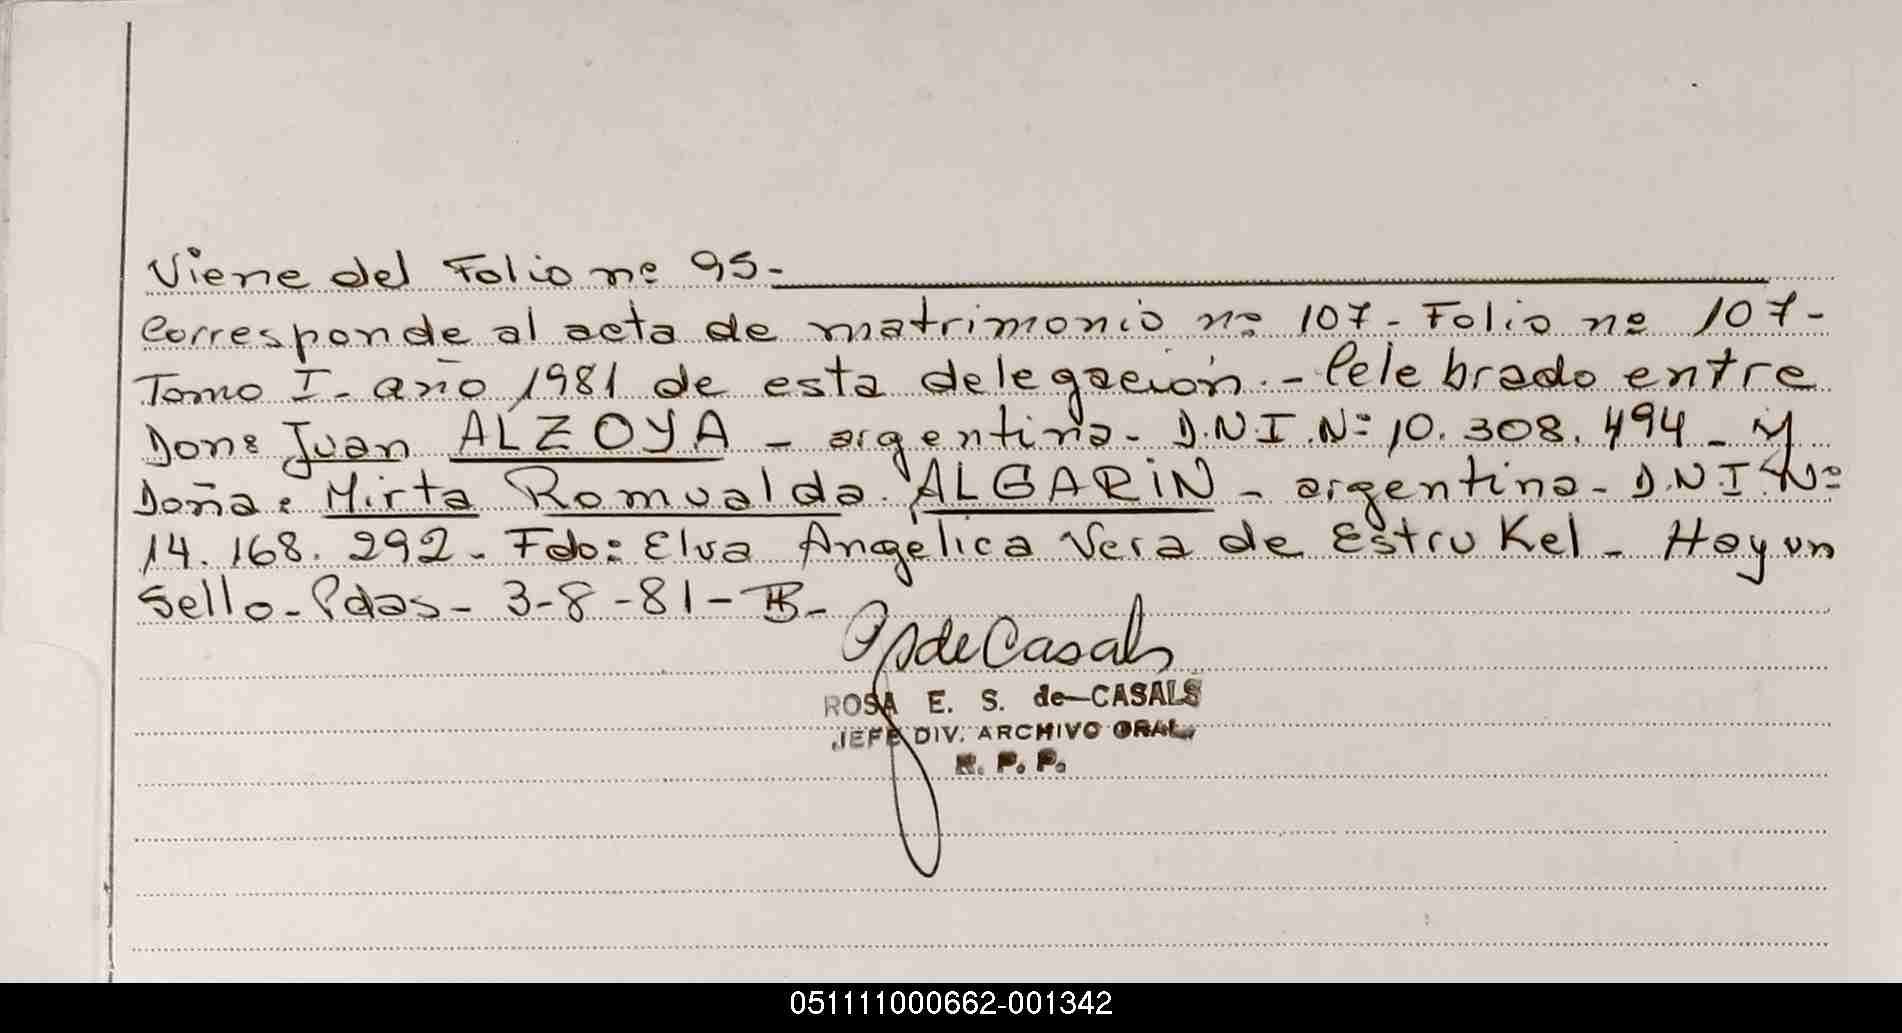 Viene del Folio nº 95-
Corresponde al acta de matrimonio nº 107- Folio nº 107-
Tomo I- año 1981 de esta delegación.- Celebrado entre
Don: Juan ALZOYA - argentino- D.N.I. Nº 10.308.494- y
Doña: Mirta Romualda ALGARIN - argentina- D.N.I. Nº
14.168.292- Fdo: Elva Angélica Vera de EstruKel- Hay un
Sello- Pdas- 3-8-81-
de Casals
ROSA E. S. de-CASALS
JEFE DIV. ARCHIVO GRAL.
R. P. P.
051111000662-001342